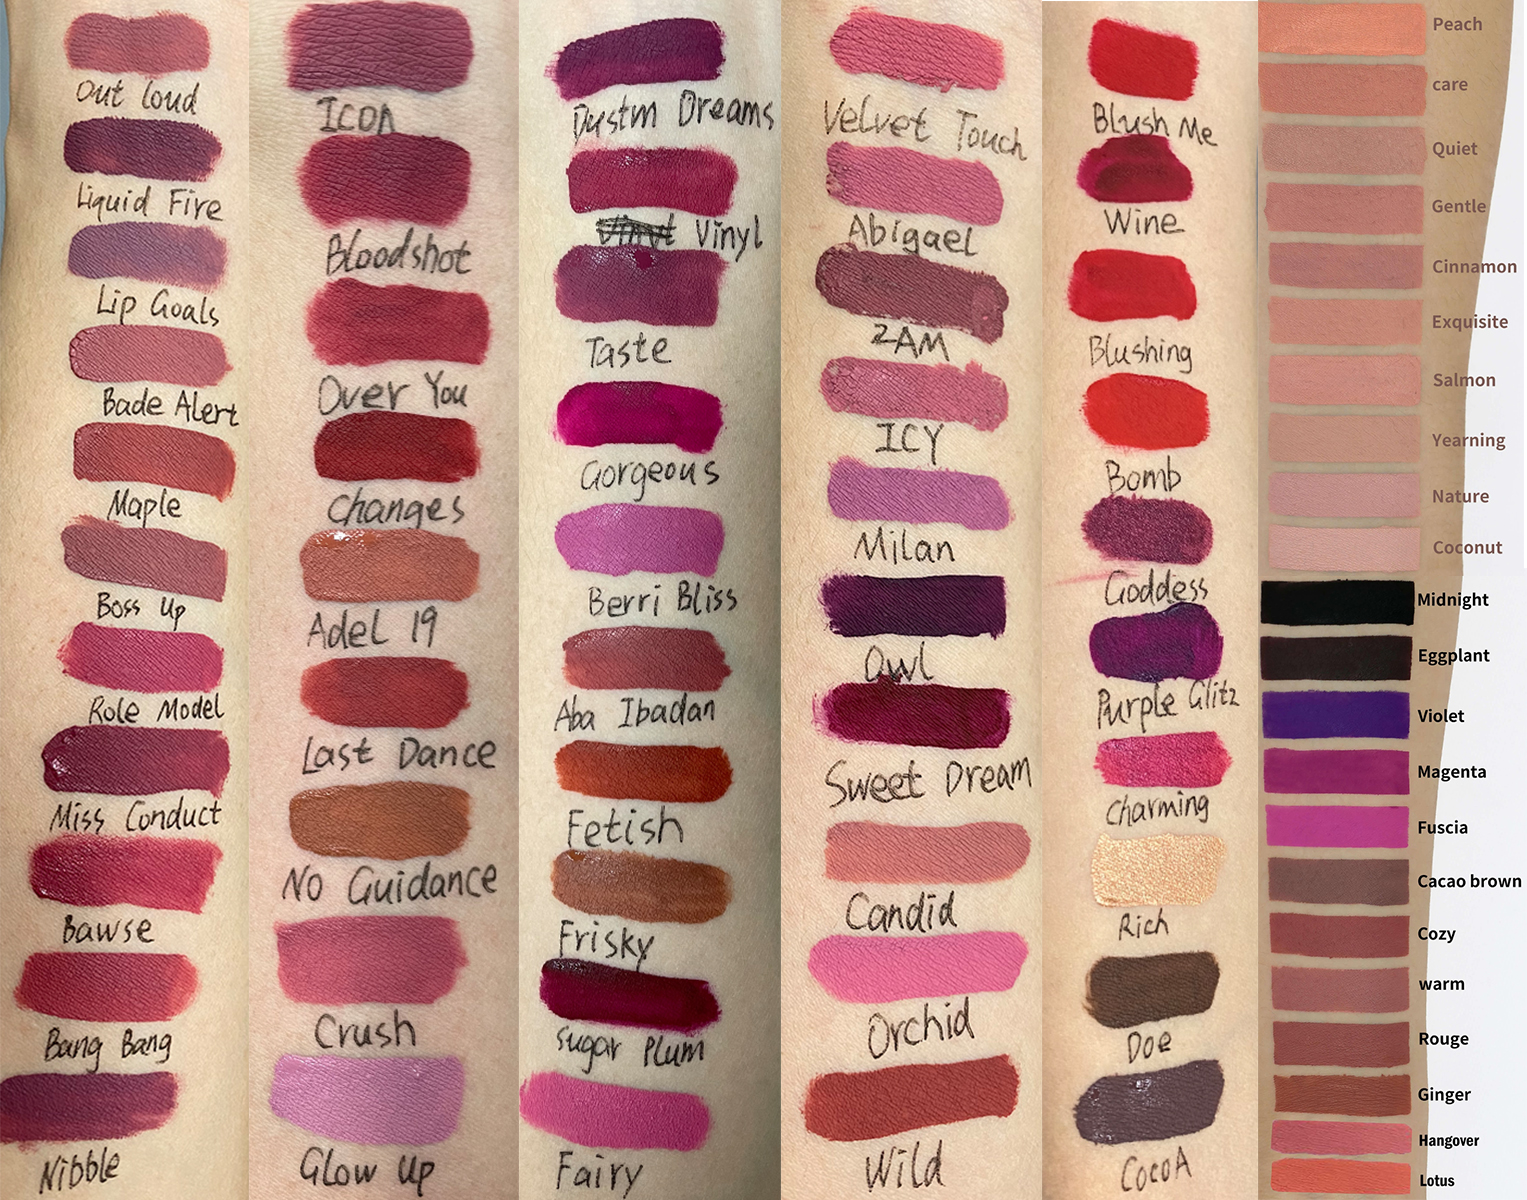 Out loud
Liquid Fire
Lip Goals
Bade Alert
Maple
Boss Up
Role Model
Miss Conduct
Bawse
Bang Bang
Nibble
ICON
Bloodshot
Over You
Changes
Adel 19
Last Dance
No Guidance
Crush
Glow Up
Dustm Dreams
Vinyl
Taste
Gorgeous
Berri Bliss
Aba Ibadan
Fetish
Frisky
Sugar Plum
Fairy
Velvet Touch
Abigael
2AM
ICY
Milan
Owl
Sweet Dream
Candid
Orchid
Wild
Blush Me
Wine
Blushing
Bomb
Goddess
Purple Glitz
Charming
Rich
Doe
CocoA
Peach
care
Quiet
Gentle
Cinnamon
Exquisite
Salmon
Yearning
Nature
Coconut
Midnight
Eggplant
Violet
Magenta
Fuscia
Cacao brown
Cozy
warm
Rouge
Ginger
Hangover
Lotus